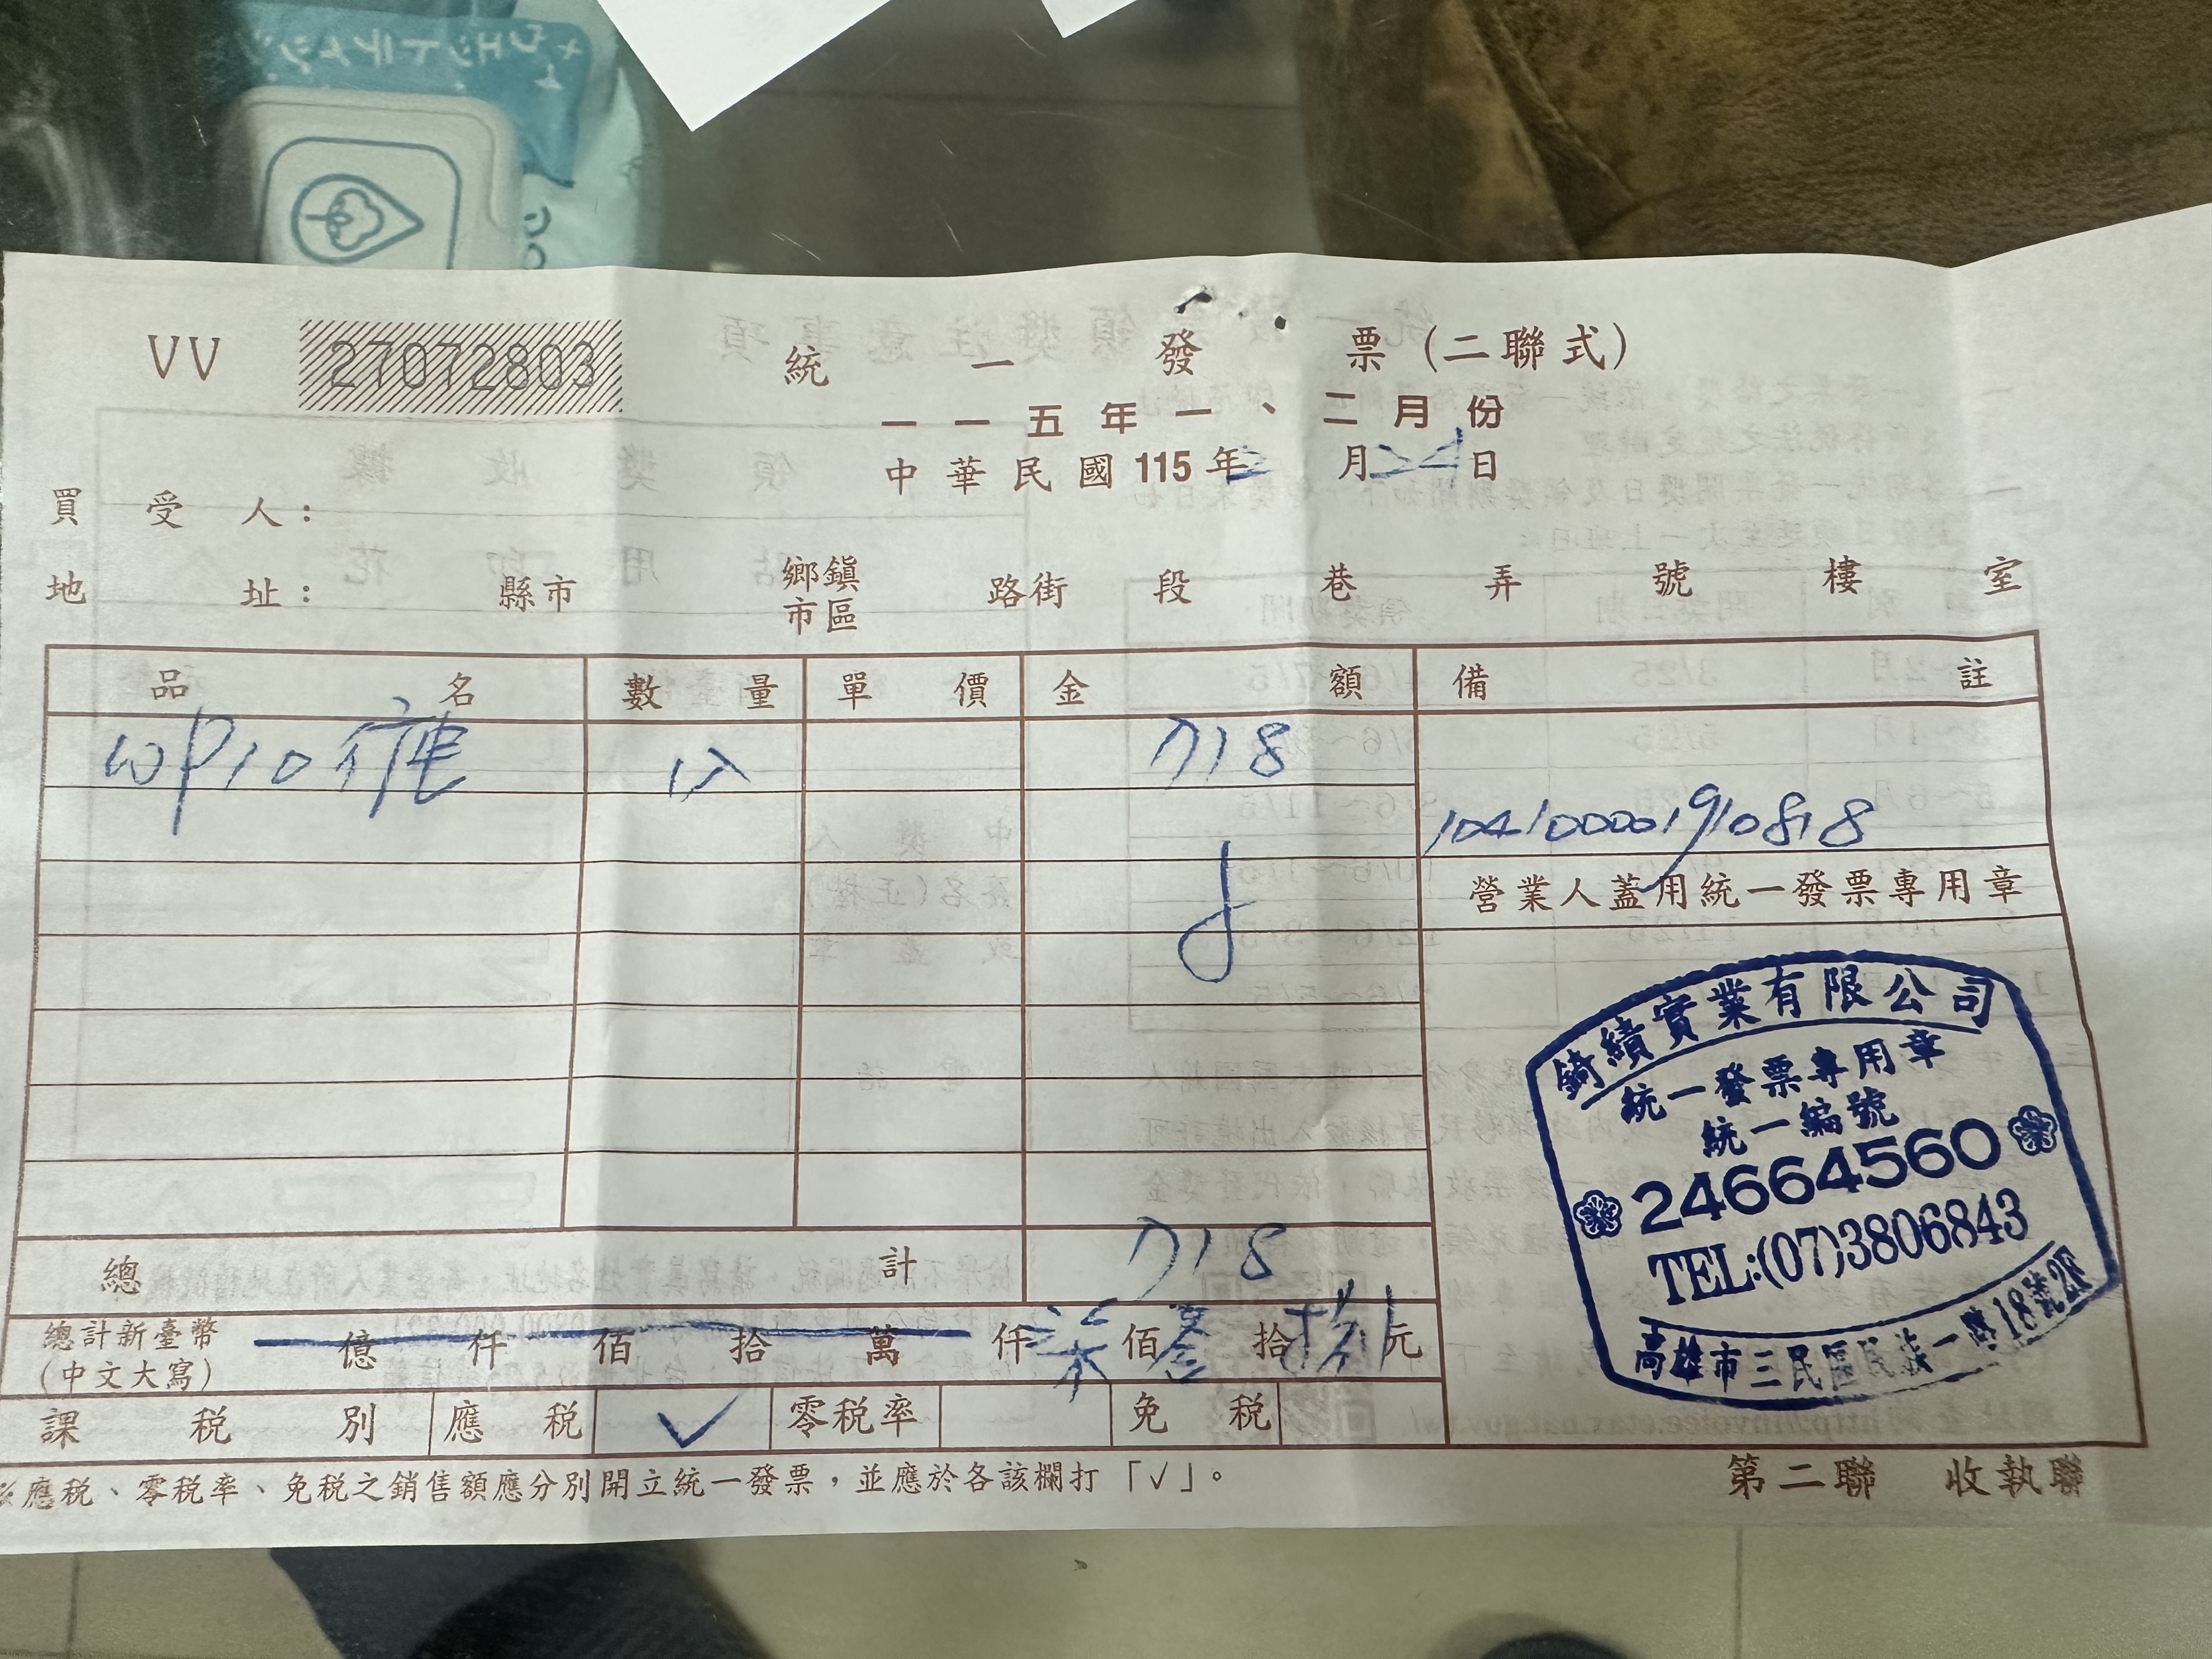 VV 27072803 統一發票(二聯式)
一一五年一、二月份
中華民國115年2月24日
買受人:
地址: 縣市 鄉鎮市區 路街 段 巷 弄 號 樓 室
品名 數量 單價 金額 備註
wp10 718
104100001910818
營業人蓋用統一發票專用章
錡績實業有限公司
統一發票專用章
統一編號
24664560
TEL:(07)3806843
高雄市三民區民族一路18號2F
總計 718
總計新臺幣(中文大寫) 億 仟 佰 拾 萬 仟 柒 佰 拾 捌 元
課稅別 應稅 ✓ 零稅率 免稅
※應稅、零稅率、免稅之銷售額應分別開立統一發票,並應於各該欄打「✓」。
第二聯 收執聯